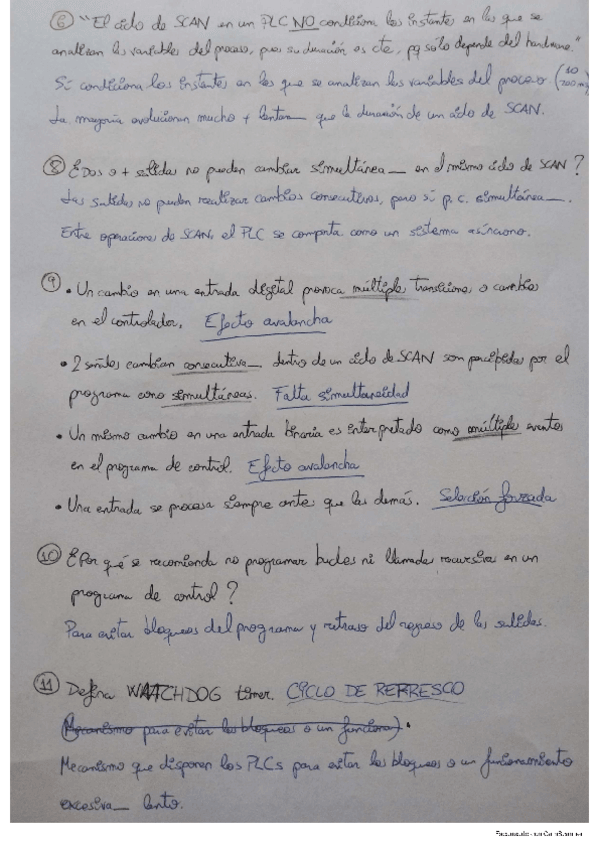 ⑥ "El ciclo de SCAN en un PLC NO condiciona los instantes en los que se
analizan las variables del proceso, pues su duración es cte, pq sólo depende del hardware."
Sí condiciona los instantes en los que se analizan las variables del proceso (10
La mayoría evolucionan mucho + lenta__ que la duración de un ciclo de SCAN.
⑧ ¿Dos o + salidas no pueden cambiar simultánea__ en el mismo ciclo de SCAN?
Las salidas no pueden realizar cambios consecutivos, pero sí p.c. simultánea__.
Entre operaciones de SCAN, el PLC se comporta como un sistema asíncrono.
⑨ • Un cambio en una entrada digital provoca múltiples transiciones o cambios
en el controlador. Efecto avalancha
• 2 señales cambian consecutiva__ dentro de un ciclo de SCAN son percibidas por el
programa como simultáneas. Falta simultaneidad
• Un mismo cambio en una entrada binaria es interpretado como múltiples eventos
en el programa de control. Efecto avalancha
• Una entrada se procesa siempre antes que las demás. Selección forzada
⑩ ¿Por qué se recomienda no programar bucles ni llamadas recursivas en un
programa de control?
Para evitar bloqueos del programa y retraso del regreso de las salidas.
⑪ Defina WATCHDOG timer. CICLO DE REFRESCO
(Mecanismo para evitar los bloqueos o un funciona).
Mecanismo que disponen los PLCs para evitar los bloqueos o un funcionamiento
excesiva__ lento.